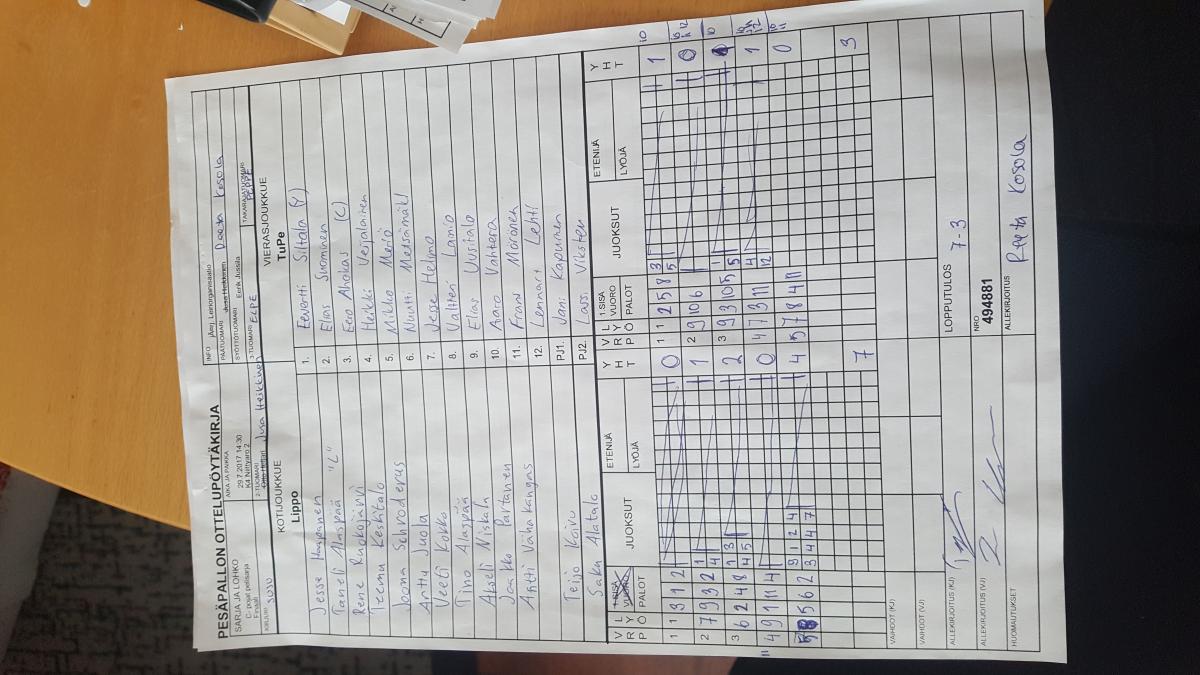 PESÄPALLON OTTELUPÖYTÄKIRJA
SARJA JA LOHKO
C-pojat pelisarja
Finaali
AIKA JA PAIKKA
29.7.2017 14:30
K4 Niittyaro 2
INFO
PÄÄTUOMARI Jussi Heikkinen Deeta Kosola
SYÖTTÖTUOMARI Eerik Jussila
KIRJURI SOJO
2-TUOMARI Jussi Heikkinen
3-TUOMARI EEPE
TAKARAJATUOMARI PEPPE
KOTIJOUKKUE
Lippo
VIERASJOUKKUE
TuPe
Jesse Haapanen
1.
Eevertti Siltala (Y)
Taneli Alaspää "L"
2.
Elias Suominen
Rene Ruokojärvi
3.
Eero Ahokas (C)
Teemu Keskitalo
4.
Heikki Veijalainen
Joona Schroderus
5.
Mikko Meriö
Arttu Juola
6.
Nuutti Metsämäki
Veeti Kokko
7.
Jesse Helmo
Tino Alaspää
8.
Valtteri Lamio
Akseli Niskala
9.
Elias Uusitalo
Jaakko Partanen
10.
Aaro Vahtera
Antti Vähäkangas
11.
Frans Mörönen
12.
Lennart Lehti
Teijo Koivu
PJ1.
Jani Kapunen
Saku Alatalo
PJ2.
Lassi Viksten
V R P
L Y Ö
1 SISÄ VUORO
PALOT
JUOKSUT
ETENIJÄ
LYÖJÄ
Y H T
V R P
L Y Ö
1 SISÄ VUORO
PALOT
JUOKSUT
ETENIJÄ
LYÖJÄ
Y H T
1 1 3 1 2
0
1 1 2 5 8
3
5
1
2 7 9 3 2
1
4
1
2 9 10 6
0
3 6 2 4 8
1 3
4 5
2
3 9 3 10 5
1
5
1
4 9 1 11 4
0
4 7 3 11
4
12
1
5 6 2
9 1 2 4
3 4 4 7
4
5 7 8 4 11
0
7
3
VAIHDOT (KJ)
VAIHDOT (VJ)
ALLEKIRJOITUS (KJ)
LOPPUTULOS
7-3
ALLEKIRJOITUS (VJ)
NRO
494881
HUOMAUTUKSET
ALLEKIRJOITUS
Reeta Kosola